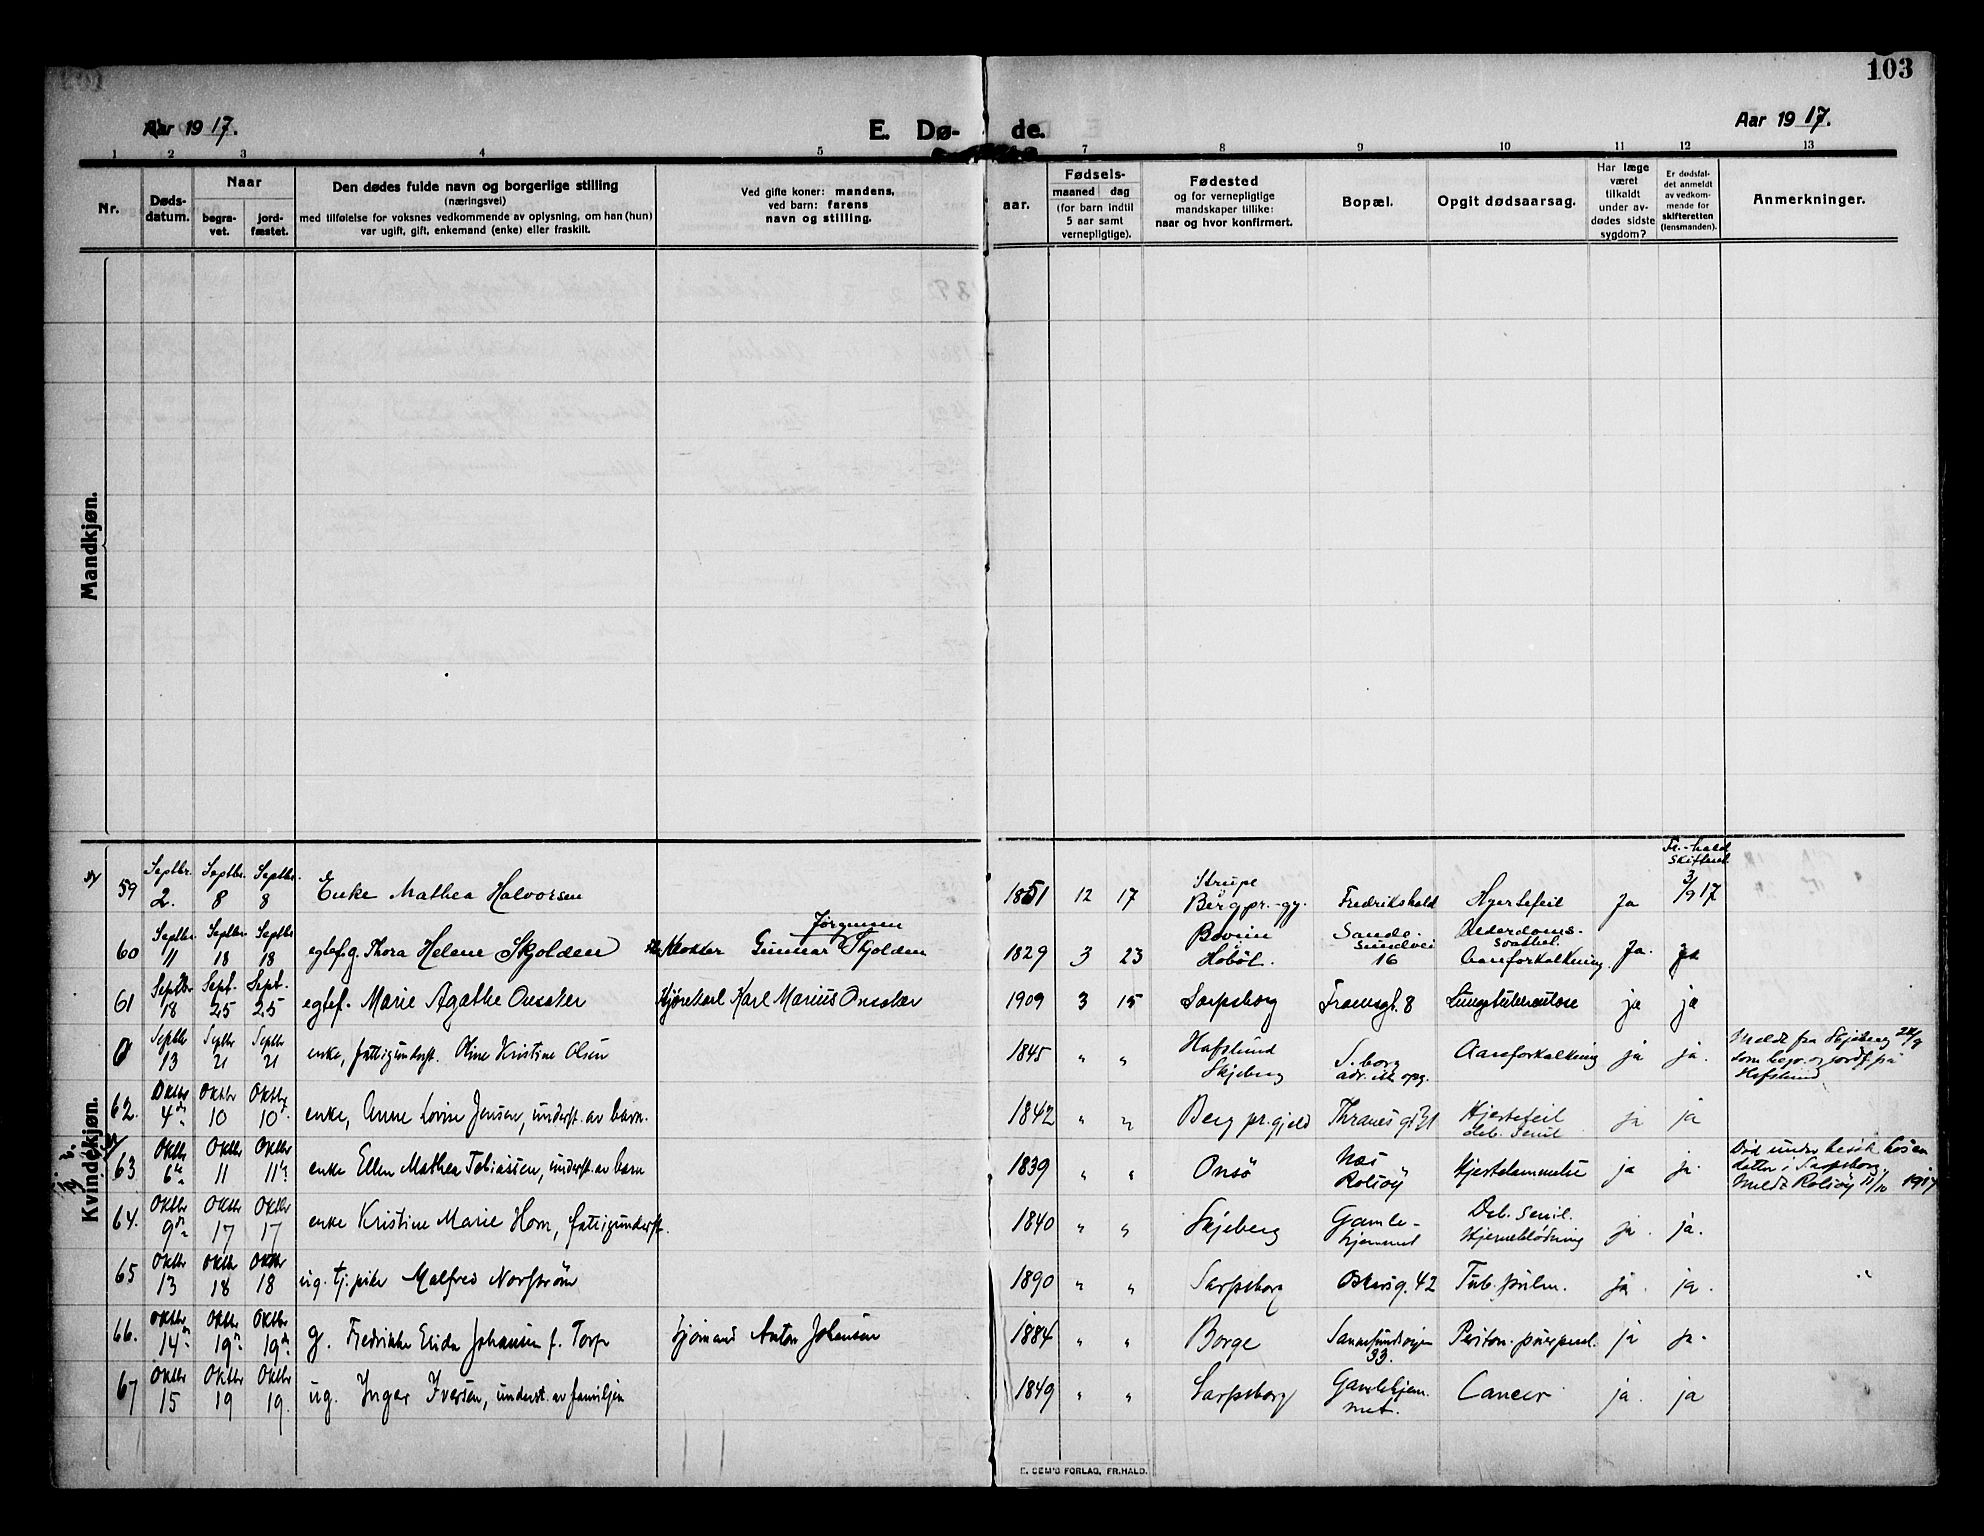 103
Aar 1917.
E. Dø- de.
Aar 1917.
1 2 3 4 5 7 8 9 10 11 12 13
Nr.
Døds-
datum.
Naar
begra-
vet.
jord-
fæstet.
Den dødes fulde navn og borgerlige stilling
(næringsvei)
med tilføielse for voksnes vedkommende av oplysning, om han (hun)
var ugift, gift, enkemand (enke) eller fraskilt.
Ved gifte koner: mandens,
ved barn: farens
navn og stilling.
Fødsels-
aar.
maaned dag
(for barn indtil
5 aar samt
vernepligtige).
Fødested
og for vernepligtige
mandskaper tillike:
naar og hvor konfirmert.
Bopæl.
Opgit dødsaarsag.
Har læge
været
tilkaldt
under av-
dødes sidste
sygdom?
Er dødsfal-
det anmeldt
av vedkom-
mende for
skifteretten
(lensmanden).
Anmerkninger.
Mandkjøn.
Kvindekjøn.
59 Septbr. 2. Septbr. 8 Septbr. 8 Enke Mathea Halvorsen 1851 12 17 Berg pr.-gj. Fredrikshald Hjertefeil Ja Fr.-hald skifteret 3/9 17
60 Septbr 11 Septbr 18 Septbr 18 egtef.g. Thora Helene Skjolden Klokker Gunnar Jørgensen Skjolden 1829 3 23 Hobøl. Sande-sundvei 16 Alderdoms-svakhet. Aareforkalkning Ja. ja
61 Septbr 18 Sept. 25 Sept. 25 egtef. Marie Agathe Onsaker Kjørekarl Karl Marius Onsaker 1909 3 15 Sarpsborg Framsgt. 8 Lungetuberkulose ja ja
0 Septbr 13 Septbr 21 Septbr 21 enke, fattigunderst. Oline Kristine Olsen 1845 " " Hafslund Skjeberg S.borg adr. ikke opg. Aareforkalkning ja ja. Meldt fra Skjeberg 24/9 som begr. og jordf. på Hafslund
62. Oktbr 4de Oktbr 10 Oktbr 10 enke, Anne Lovise Jensen, underst. av barn. 1842 " " Berg pr.gjeld Thranesgt 31 Hjertefeil deb. senil ja ja
63 Oktbr 6te Oktbr 11 Oktbr 11te enke Ellen Mathea Tobiassen, underst. av barn 1839 " " Onsö Næs Rolsöy Hjertelammelse ja ja. Död under besök hos en datter i Sarpsborg. Meldt Rolsöy 11/10 1917
64. Oktbr 9de Oktbr 17 Oktbr 17 enke Kristine Marie Horn, fattigunderst. 1840 " " Skjeberg Gamle-hjemmet Deb. senil. Hjerneblödning ja. ja.
65 Oktbr 13 Oktbr 18 Oktbr 18 ug. tj.pike Malfred Norström 1890 " " Sarpsborg Oskarsg. 42 Tub. pulm. ja. ja.
66. Oktbr 14de Oktbr 19de Oktbr 19de g. Fredrikke Elida Johansen f. Torp Sjömand Anton Johansen 1884 " " Borge Sannesundsveien 33. Periton. puerperal. ja ja.
67 Oktbr 15 Oktbr 19 Oktbr 19. ug. Inger Iversen, underst. av familjen 1849 " " Sarpsborg Gamlehjem-met. Cancer ja. ja
E. SEM'S FORLAG, FR.HALD.